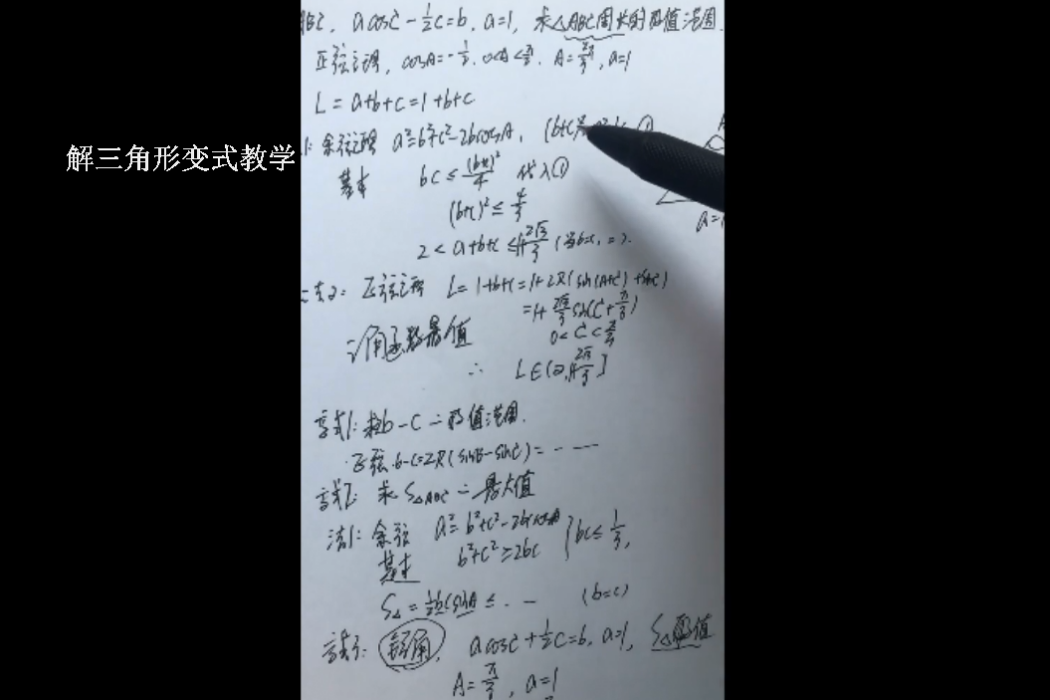 解三角形变式教学
acosC - 1/2c=b, a=1, 求△ABC周长的取值范围
正弦定理, cosA=-1/2. 0<A<π. A=2π/3, a=1
L = a+b+c=1+b+c
余弦定理 a²=b²+c²-2bccosA,
基本 bc≤(b+c)²/4 代入①
(b+c)²≤4/3
2<a+b+c≤1+2√3/3 (当b=c, =).
法2: 正弦定理 L=1+b+c=1+2R(sin(A+C)+sinC)
=1+2√3/3sin(C+π/3)
0<C<π/3
三角函数最值
∴ L∈(2,1+2√3/3]
变式1: 求b-c的取值范围.
正弦 b-c=2R(sinB-sinC)=……
变式2: 求S△ABC的最大值
法1: 余弦 a²=b²+c²-2bccosA
基本 b²+c²≥2bc } bc≤1/3,
S△=1/2bcsinA≤…… (b=c)
变式3: 锐角, acosC+1/2c=b, a=1, S△取值
A=π/3, a=1
a=1